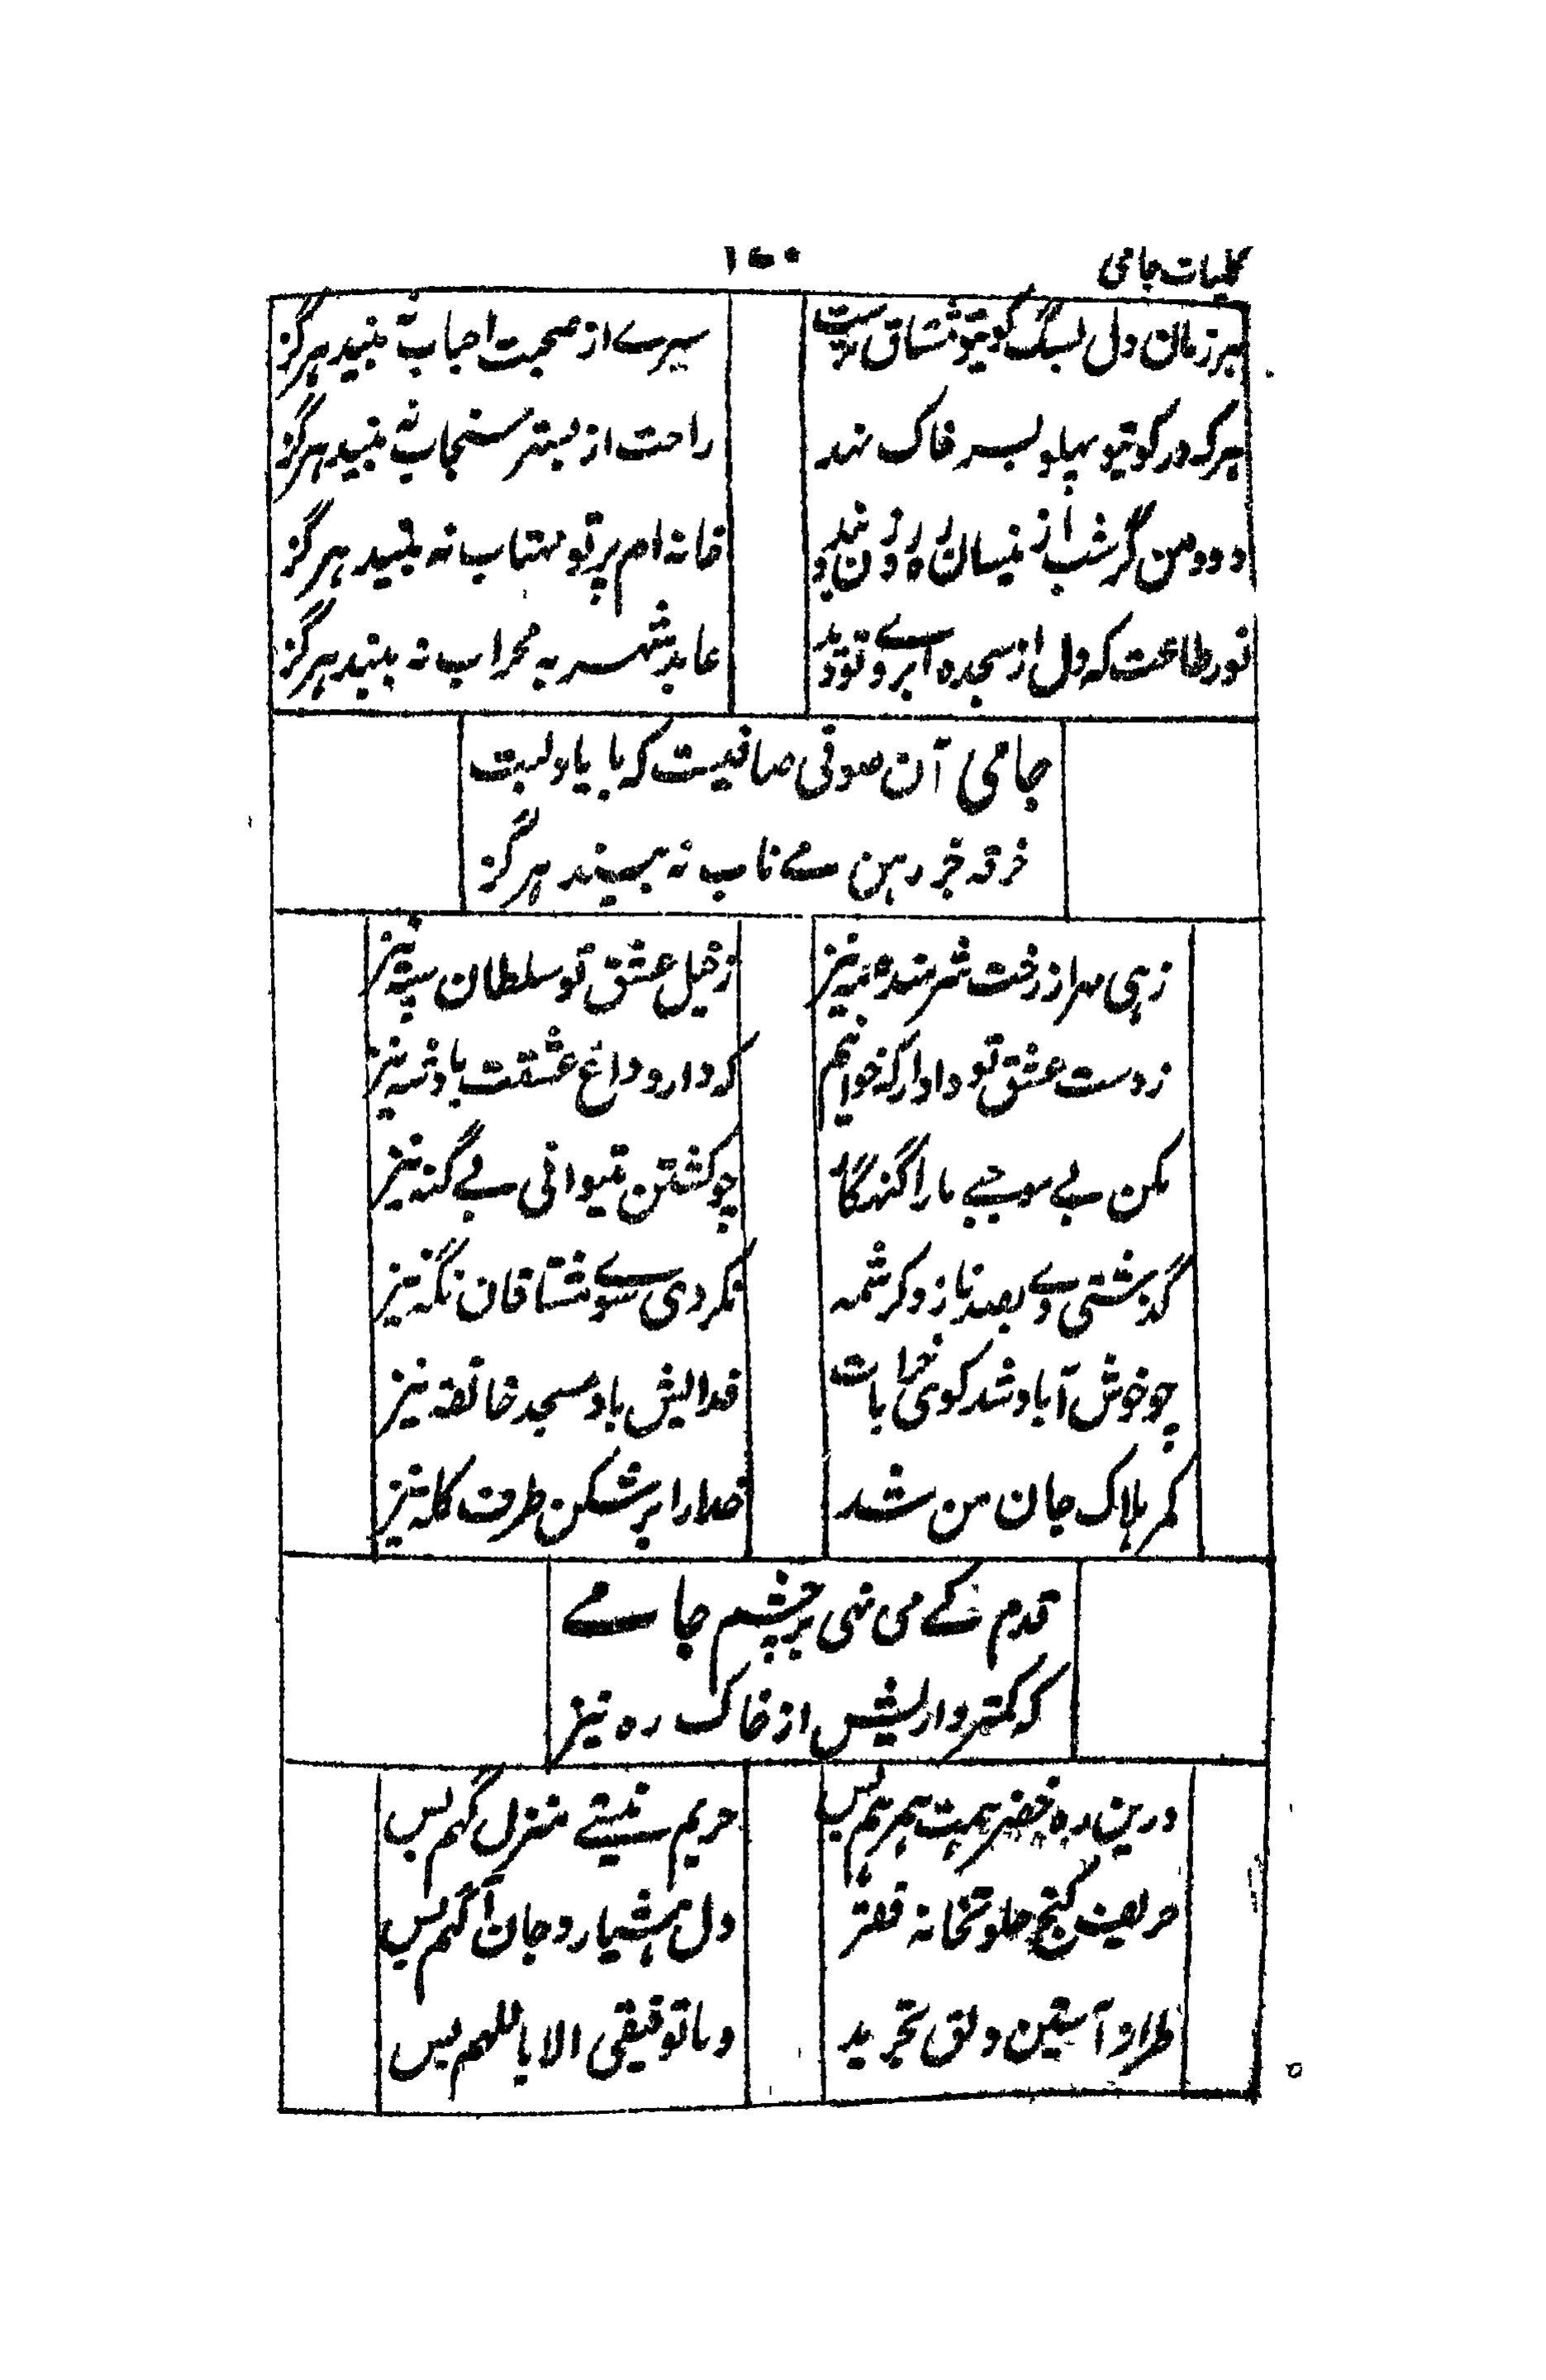 کلیات جامی
۱۷۰
ہر زمان دل بسگ کویتو مشتاق ترست
سیرے از صحبت احباب نہ بیند ہرگز
ہر کہ در کویتو پہلو بسر خاک نہد
راحت از بستر سنجاب نہ بیند ہرگز
دود من گر شب ازینسان رود از روزن
خانہ ام پرتو مہتاب نہ بیند ہرگز
نور طاعت کہ دل از سجدہ ابروے تو دید
عابد شہر بہ محراب نہ بیند ہرگز
جامی آن صوفی صافیست کہ با یاد لبت
خرقہ جز رہن مے ناب نہ بیند ہرگز
زہی مہر از رخت شرمندہ مہ نیز
زخیل عشق تو سلطان سپہ نیز
ز دست عشق تو داد از کہ خواہم
کہ دارد داغ عشقت بادشہ نیز
مکن بے موجبے ما را گنہگار
چو کشتن میتوانی بے گنہ نیز
گذشتی دے بصد ناز و کرشمہ
نکردی سوے مشتاقان نگہ نیز
چو خوش آباد شد کوی خرابات
فدایش باد مسجد خانقہ نیز
کمر ہلاک جان من شد
خدا را بر شکن طرف کلہ نیز
قدم کے می نہی بر چشم جامے
کہ کمتر داریش از خاک رہ نیز
درین رہ خضر ہمت ہمرہم بس
حریم نیستے منزل گہم بس
حریف کنج خلوتخانہ فقر
دل ہشیار و جان آگہم بس
طراز آستین دلق تجرید
و ما توفیقی الا باللہم بس